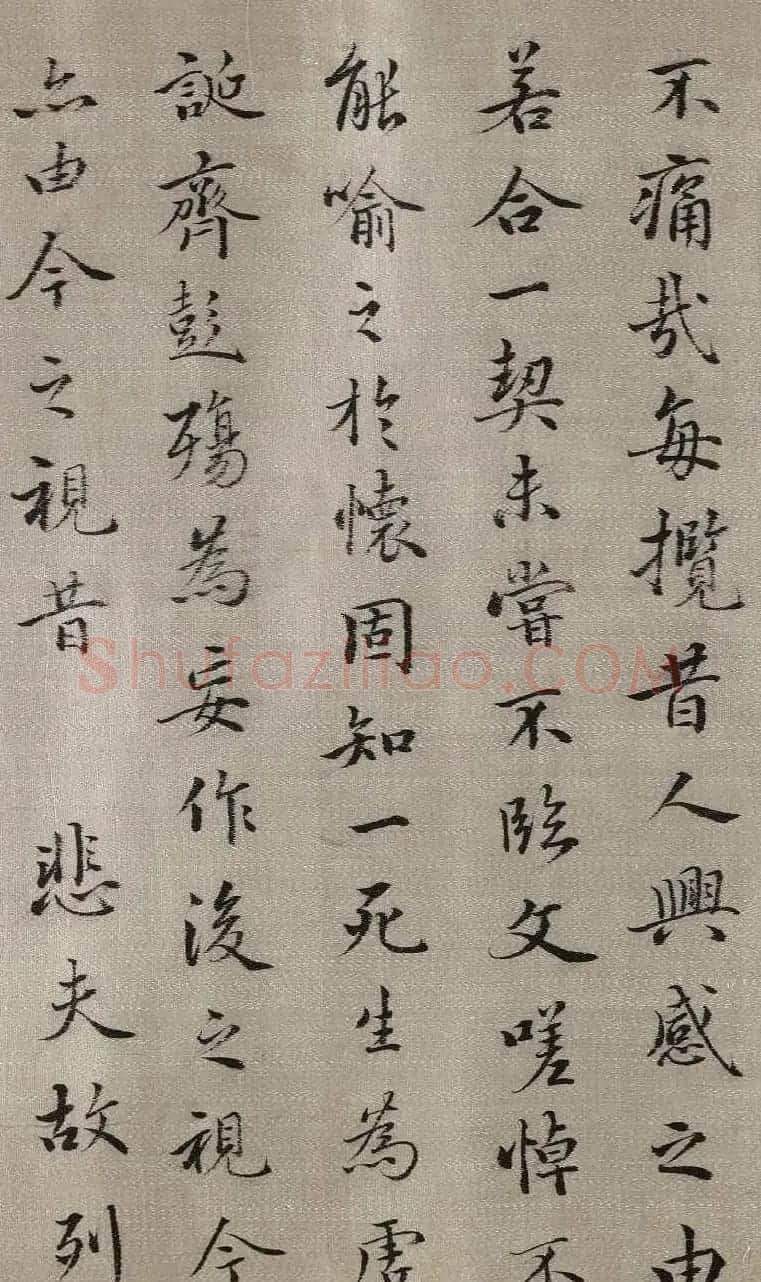 不痛哉每攬昔人興感之由
若合一契未嘗不臨文嗟悼不
能喻之於懷固知一死生為虛
誕齊彭殤為妄作後之視今
亦由今之視昔 悲夫故列
Shufazitiao.COM